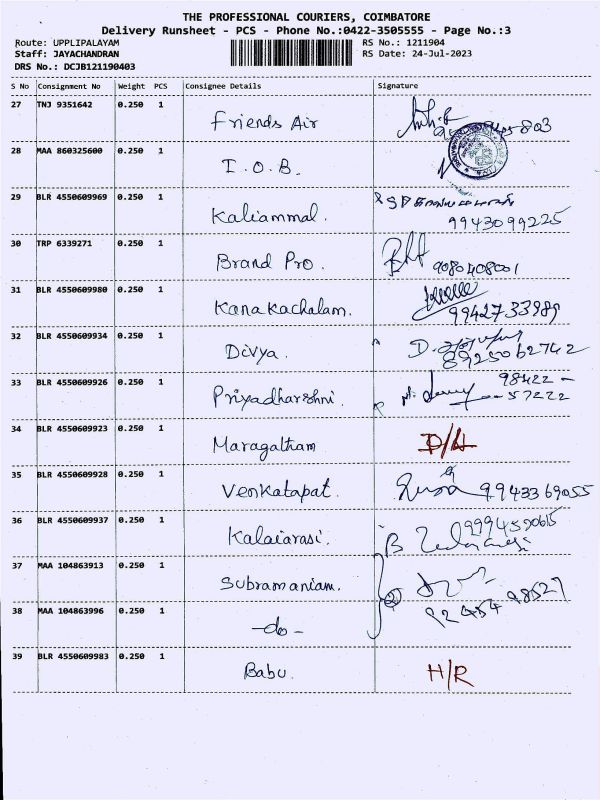 THE PROFESSIONAL COURIERS, COIMBATORE
Delivery Runsheet - PCS - Phone No.:0422-3505555 - Page No.:3
Route: UPPLIPALAYAM RS No.: 1211904
Staff: JAYACHANDRAN RS Date: 24-Jul-2023
DRS No.: DCJB121190403
S No Consignment No Weight PCS Consignee Details Signature
27 TNJ 9351642 0.250 1 Friends Air
28 MAA 860325600 0.250 1 I.O.B.
29 BLR 4550609969 0.250 1 Kaliammal. 9943099225
30 TRP 6339271 0.250 1 Brand Pro. 9080408001
31 BLR 4550609980 0.250 1 Kanakachalam. 9942733989
32 BLR 4550609934 0.250 1 Divya. 8925062742
33 BLR 4550609926 0.250 1 Priyadharshni. 98422-
57222
34 BLR 4550609923 0.250 1 Maragatham D/L
35 BLR 4550609928 0.250 1 Venkatapat. 9943369055
36 BLR 4550609937 0.250 1 Kalaiarasi.
37 MAA 104863913 0.250 1 Subramaniam.
38 MAA 104863996 0.250 1 -do-
39 BLR 4550609983 0.250 1 Babu. H/R